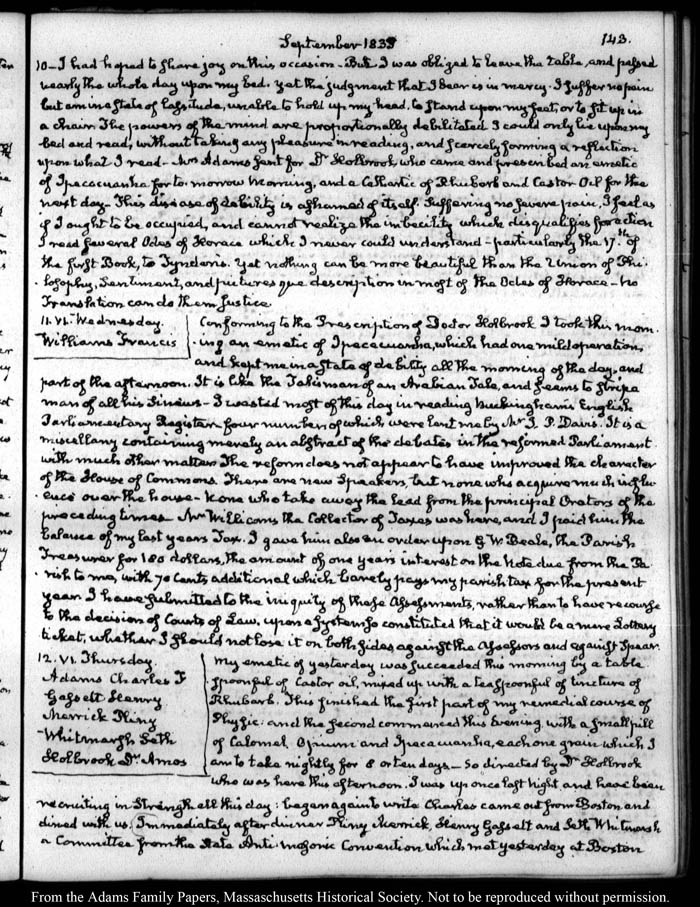 September 1833 143.
10 – I had hoped to share joy on this occasion – But I was obliged to leave the table, and passed
nearly the whole day upon my bed. Yet the judgment that I bear is in mercy. I suffer no pain
but am in a state of lassitude, unable to hold up my head, to stand upon my feet, or to sit up in
a chair. The powers of the mind are proportionally debilitated I could only lie upon my
bed and read, without taking any pleasure in reading, and scarcely forming a reflection
upon what I read – Mrs Adams sent for Dr Holbrook, who came and prescribed an emetic
of Ipecacuanha for to-morrow morning, and a Cathartic of Rhubarb and Castor Oil for the
next day – This disease of debility is ashamed of itself. Suffering no severe pain, I feel as
if I ought to be occupied, and cannot realize the imbecility which disqualifies for action
I read several Odes of Horace which I never could understand – particularly the 17th of
the first Book, to Tyndaris. Yet nothing can be more beautiful than the Union of Phi-
losophy, Sentiment, and picturesque description in most of the Odes of Horace – No
Translation can do them justice
11. VI. Wednesday.
Williams Francis
Conforming to the Prescription of Doctor Holbrook I took this morn-
ing an emetic of Ipecacuanha, which had one mild operation,
and kept me in a state of debility all the morning of the day, and
part of the afternoon. It is like the Talisman of an Arabian Tale, and seems to strip a
man of all his Sinews – I wasted most of this day in reading Buckingham's English
Parliamentary Register four number of which were lent me by Mr I. P. Davis. It is a
miscellany containing merely an abstract of the debates in the reformed Parliament
with much other matter. The reform does not appear to have improved the character
of the House of Commons. There are new Speakers, but none who acquire much influ-
ence over the house – None who take away the lead from the principal Orators of the
preceding times – Mr Williams the Collector of Taxes was here, and I paid him the
balance of my last years Tax. I gave him also an order upon G. W. Beale, the Parish
Treasurer for 180 dollars, the amount of one years interest on the Note due from the Pa-
rish to me, with 70 Cents additional which barely pays my parish tax for the present
year. I have submitted to the iniquity of these Assessments, rather than to have recourse
to the decision of Courts of Law, upon a System so constituted that it would be a mere Lottery
ticket, whether I should not lose it on both sides against the Assessors and against Spear.
12. VI. Thursday.
Adams Charles F
Gassett Henry
Merrick Pliny
Whitmarsh Seth
Holbrook Dr Amos
My emetic of yesterday was succeeded this morning by a table
spoonful of Castor oil, mixed up with a teaspoonful of tincture of
Rhubarb. Thus finished the first part of my remedial course of
Physic: and the second commenced this Evening with a small pill
of Calomel, Opium and Ipecacuanha, each one grain which I
am to take nightly for 8 or ten days – So directed by Dr Holbrook
who was here this afternoon. I was up once last night and have been
recruiting in Strength all this day: began again to write Charles came out from Boston and
dined with us. Immediately after dinner Pliny Merrick, Henry Gassett and Seth Whitmarsh
a Committee from the State Anti-masonic Convention which met yesterday at Boston
From the Adams Family Papers, Massachusetts Historical Society. Not to be reproduced without permission.